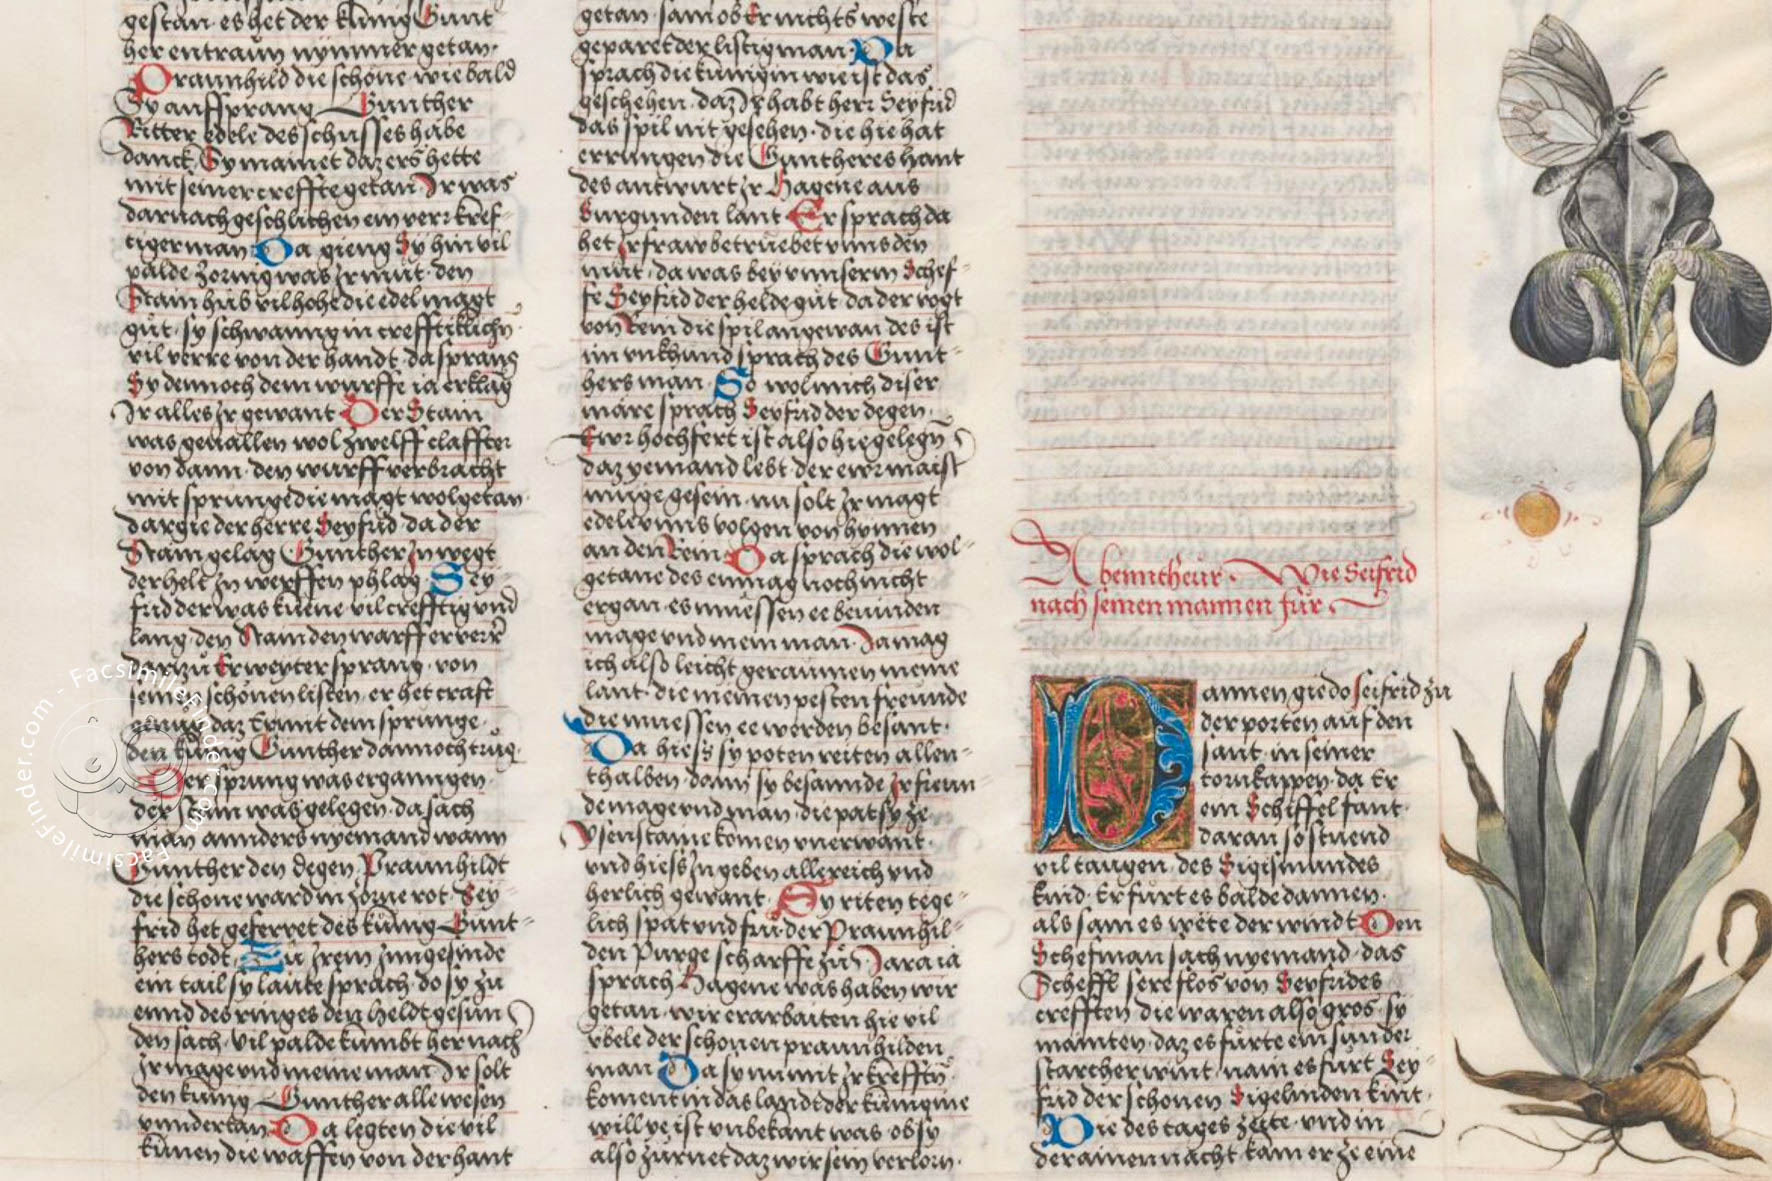 gestan · es het der kűnig Gunt
her entraűn nymmer getan ·
Praunhild die schöne wie bald
Sy auf sprang Gunther
Ritter edele des schusses habe
danck Sy mainet daz ers hette
mit seiner creffte getan Ir was
darnach geschlichen ein verr kref-
tiger man Da gieng Sy hin vil
palde zornig was Ir mŭt · den
Stain hůb vil hoch die edel magt
gŭt · sy schwanng in crefftiklichn̄
vil verre von der handt · da sprang
Sy dennoch dem wurffe ia erklang
Ir alles Ir gewant Der Stain
was geuallen wol zwelff claffter
von dann · den wurff verbracht
mit sprunge die magt wolgetan ·
dar gie der herre Seyfrid da der
Stain gelag Gunther In wegt
der helt In werffen phlag Sey-
frid der was kuene vil crefftig und
lang · den Stain den warff er verr
darzŭ Er weyter sprang · von
seinen schönen listen er het craft
genŭg daz Er mit dem sprunge ·
den kŭnig Gunther dannoch trŭg ·
Der sprung was erganngen ·
der stain was gelegen · da sach
man annders nyemand wann
Gunther den degen · Praunhildt
die schöne ward in zorne rot · Sey-
frid het geferret des kŭnig Gunt-
hers todt · Zŭ Irem Inngesinde
ein tail sy laute sprach · do sy zu
ennd des ringes den heldt gesun̄
den sach · vil palde kumbt her nach
Ir mage vnd meine man Ir solt
den kunig Gunther alle wesen
vnndertan Da legten die vil
kŭnen die waffen von der hant
getan · sam ob Er nichts weste
geparet der listig man · Da
sprach die kŭnigin wie ist das
geschehen · daz Ir habt herr Seyfrid
das spil nit gesehen · die hie hat
errungen die Guntheres hant
des antwurt Ir Hagene aus
Burgunden lant Er sprach da
het Ir fraw betrŭebet vnns den
mŭt · da was bey vnnserm Schef-
fe Seyfrid der helde gŭt da der vogt
von Rein die spil angewan des ist
im vnkhund sprach des Gunt-
hers man · So wol mich diser
märe sprach Seyfrid der degen ·
Ewr hochfert ist also hie gelegn̄
daz yemand lebt der ewr maist
muge gesein · nu solt Ir magt
edele vnns volgen von hynnen
an den Rein Da sprach die wol-
getane des enmag noch nicht
ergan · es muessen ee bevinden
mage vnd mein man · Ia mag
ich also leicht geraumen meine
lant · die meinen pesten freunde
die muessen ee werden besant ·
Da hiess sy poten reiten allen-
thalben · dann sy besannde Ir freun-
de mage vnd man · die pat sy ze
Ysenstaine komen vnerwant ·
vnd hiess In geben alle reich vnd
herlich gewant · Sy riten tege-
lich spat vnd frŭ · der Praunhil-
den Purge scharffe zŭ Iara ia
sprach Hagene was haben wir
getan · wir erarbaiten hie vil
vbele der schonen praunhilden
man Da sy nu mit Ir krefftn̄ ·
koment in das landt der kŭnigine
will ye ist vnbekant was · ob sy
also zŭrnet daz wir sein verlorn ·
Abentheur · Wie Seifrid
nach seinen mannen fŭr ·
Dannen gie do seifrid zu
der porten auf den
sant · in seiner
tornkappen · da Er
ein Schiffel fant ·
daran so stuend
vil taugen · des Sigismundes
kind · Er fŭrt es balde dannen ·
als sam es wëte der windt Den
Schefman sach nyemand · das
Scheffl sere flos von Seyfrides
crefften die waren also gros · sy
mainten · daz es fŭrte ein sunder
starcher wint · nain es fŭrt Sey-
frid der schonen Sigelinden kint ·
Bie des tages zeite · vnd in
der ainen nacht kam er ze eine